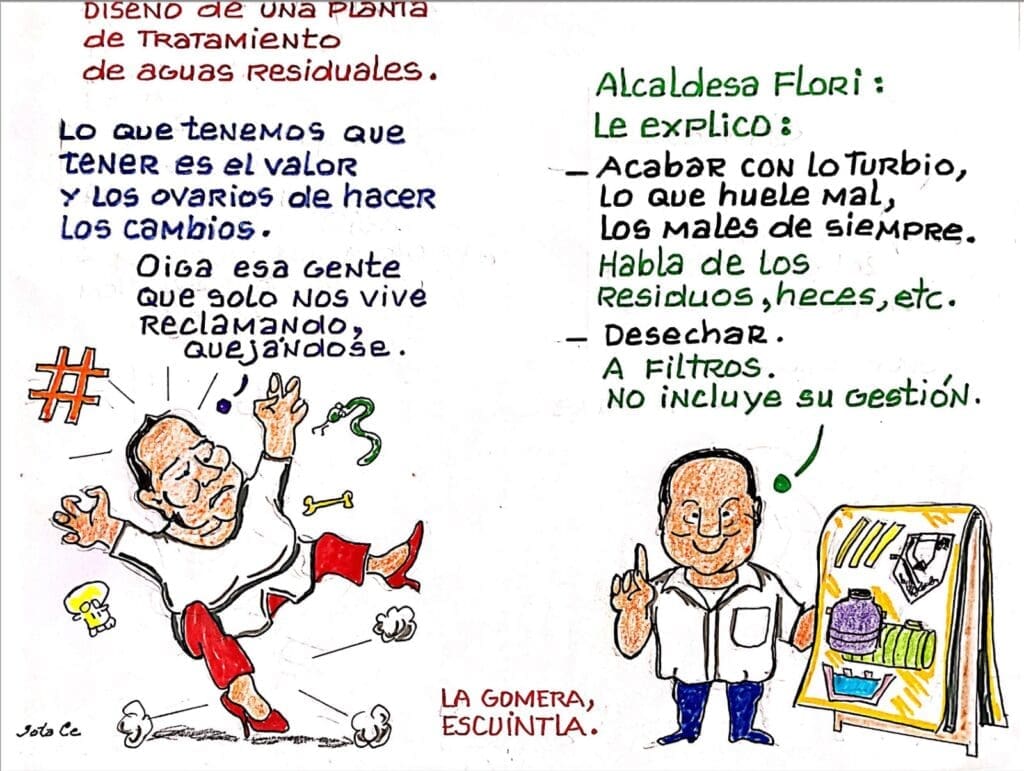 DISEÑO de UNA PLANTA
de TRATAMIENTO
de AGUAS RESIDUALES.
LO QUE TENEMOS QUE
TENER ES EL VALOR
Y LOS OVARIOS de HACER
LOS CAMBIOS.
OIGA ESA GENTE
QUE SOLO NOS VIVE
RECLAMANDO,
QUEJÁNDOSE.
#
Alcaldesa FLORI:
Le EXPLICO:
- Acabar CON LO TURBIO,
LO QUE HUELE MAL,
LOS MALES DE SIEMPRE.
Habla de LOS
RESIDUOS, HECES, etc.
- Desechar.
A FILTROS.
NO INCLUYE SU GESTIÓN.
LA GOMERA,
ESCUINTLA.
Jota Ce